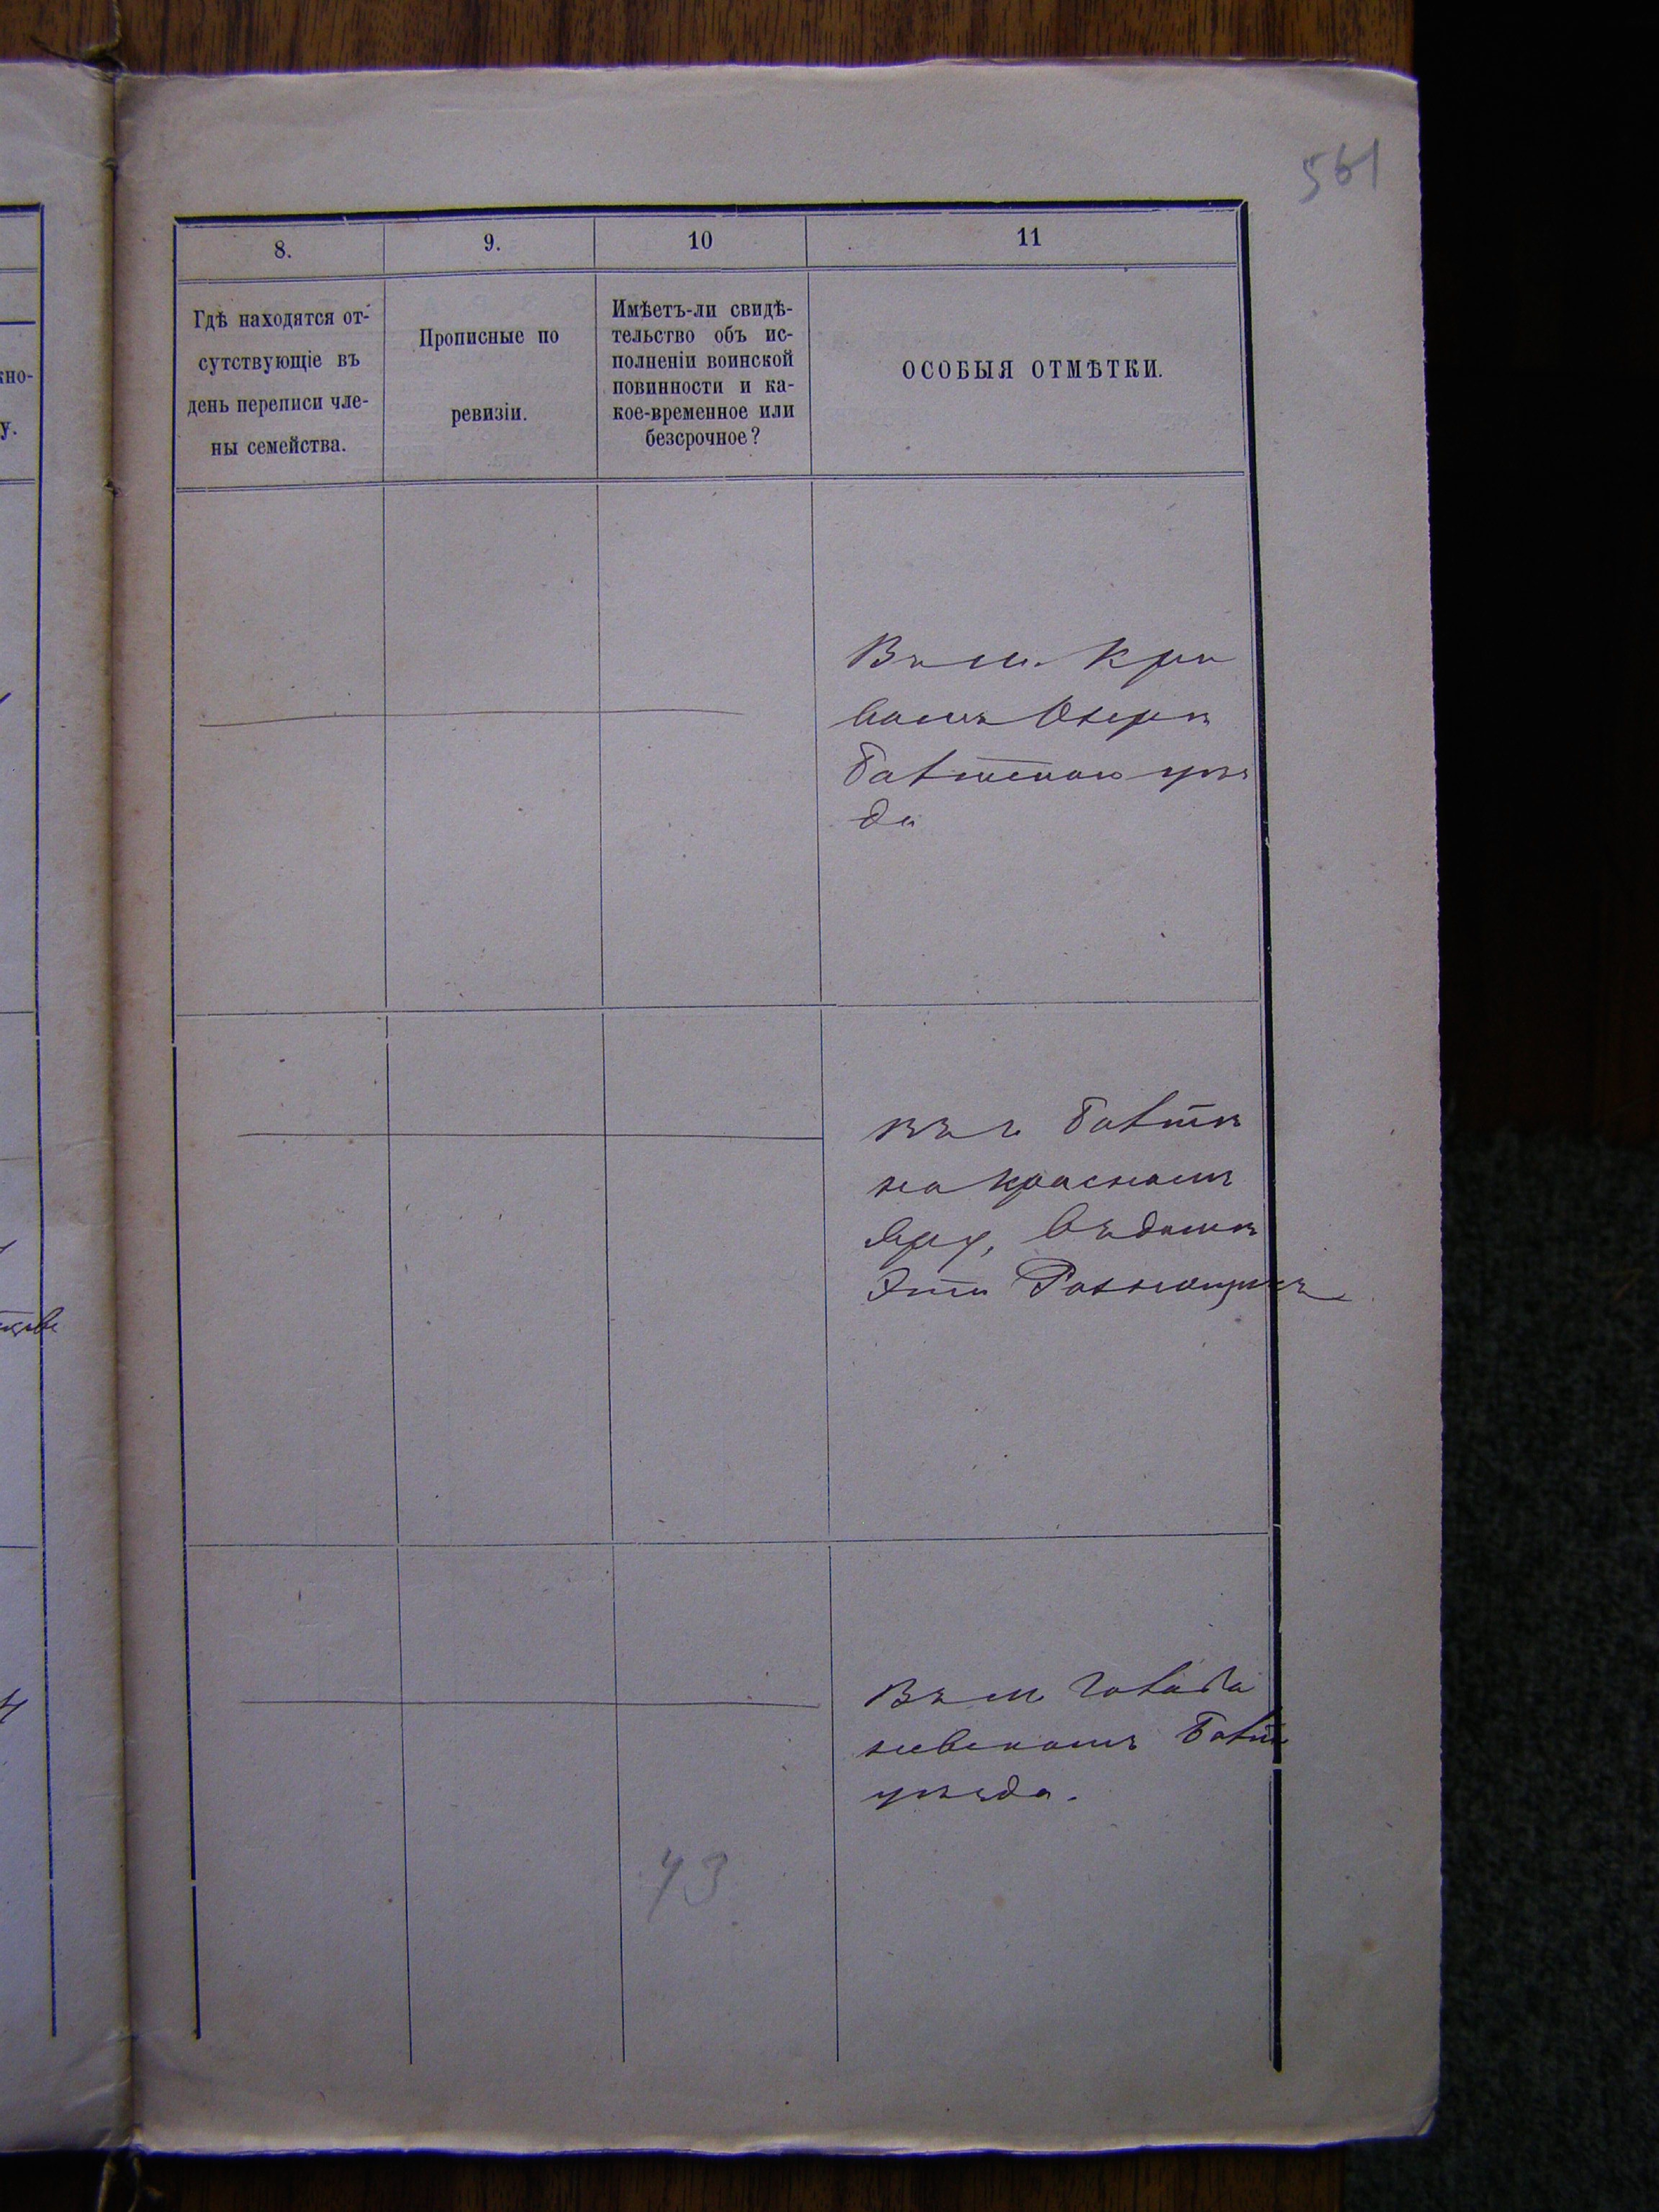 561
8.
9.
10
11
Гдѣ находятся от-
сутствующіе въ
день переписи чле-
ны семейства.
Прописные по
ревизіи.
Имѣетъ-ли свидѣ-
тельство объ ис-
полненіи воинской
повинности и ка-
кое-временное или
безсрочное?
ОСОБЫЯ ОТМѢТКИ.
кно-
у.
Въ м. Кри
вомъ Озерѣ
Балтскаго уѣз
да
въ г. Балтѣ
на Красномъ
Яру, въ домѣ
въ м.
Балт
уѣзда.
43